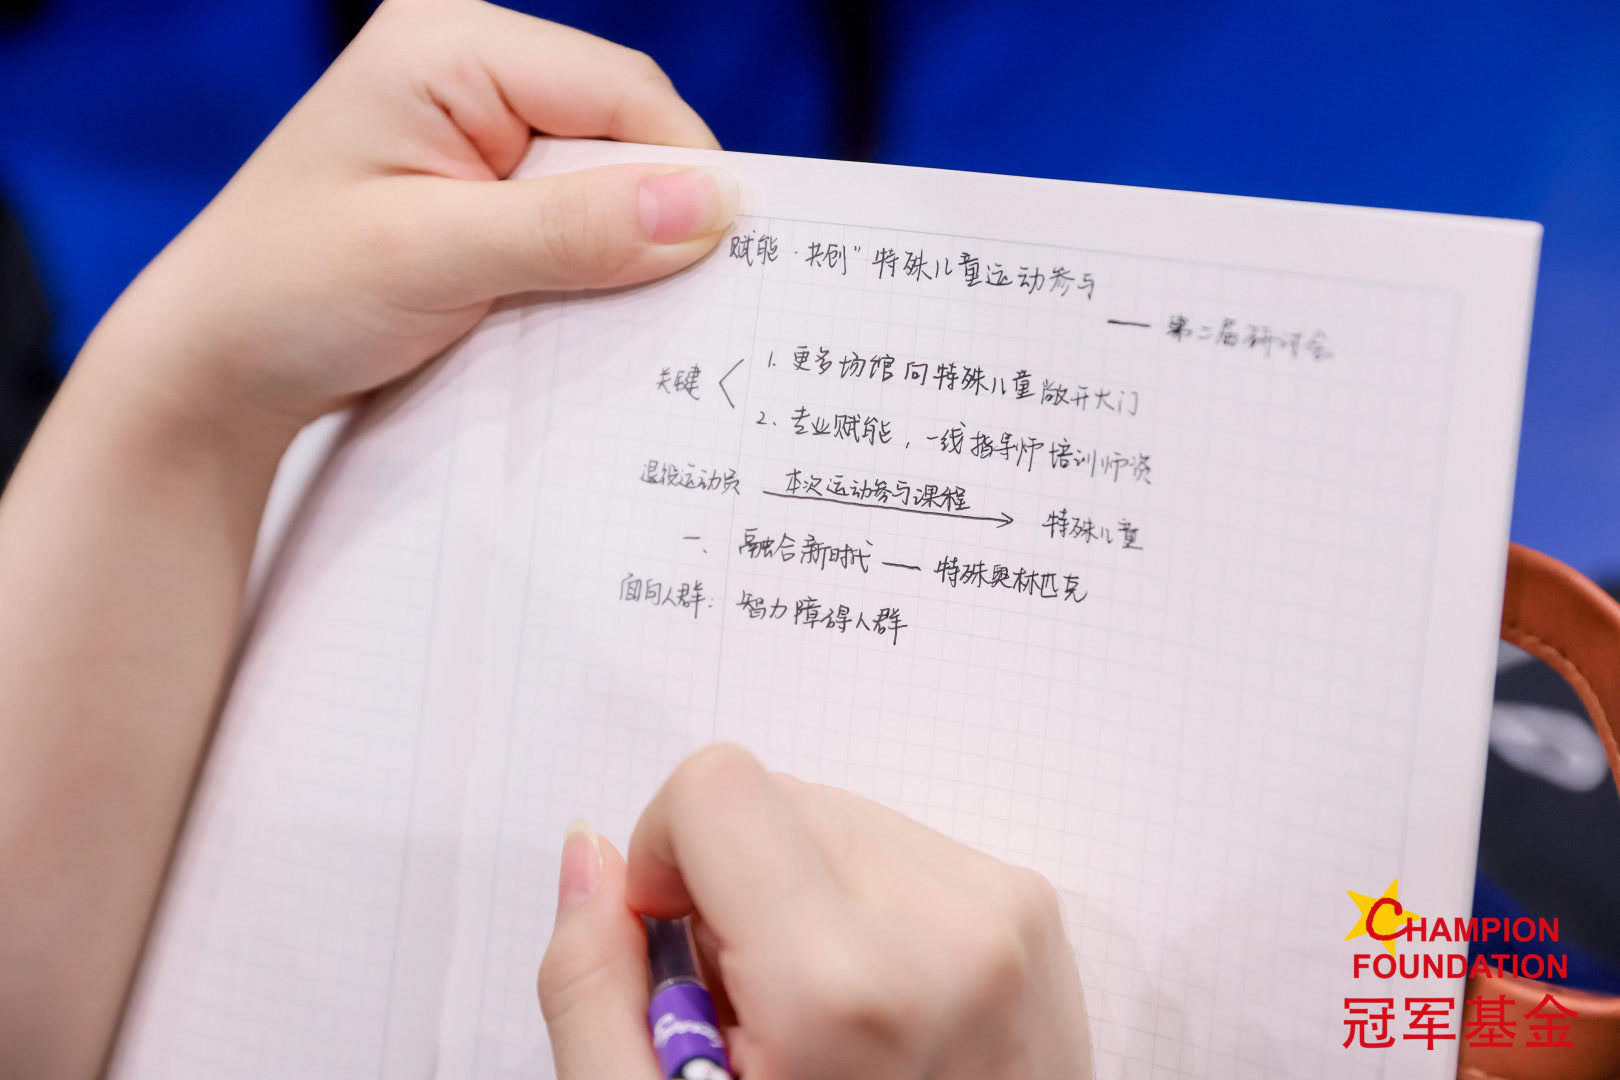 赋能·共创”特殊儿童运动参与
——第二届研讨会
关键 1. 更多场馆向特殊儿童敞开大门
2. 专业赋能，一线指导师培训师资
退役运动员 本次运动参与课程 特殊儿童
一、融合新时代——特殊奥林匹克
面向人群：智力障碍人群
CHAMPION
FOUNDATION
冠军基金